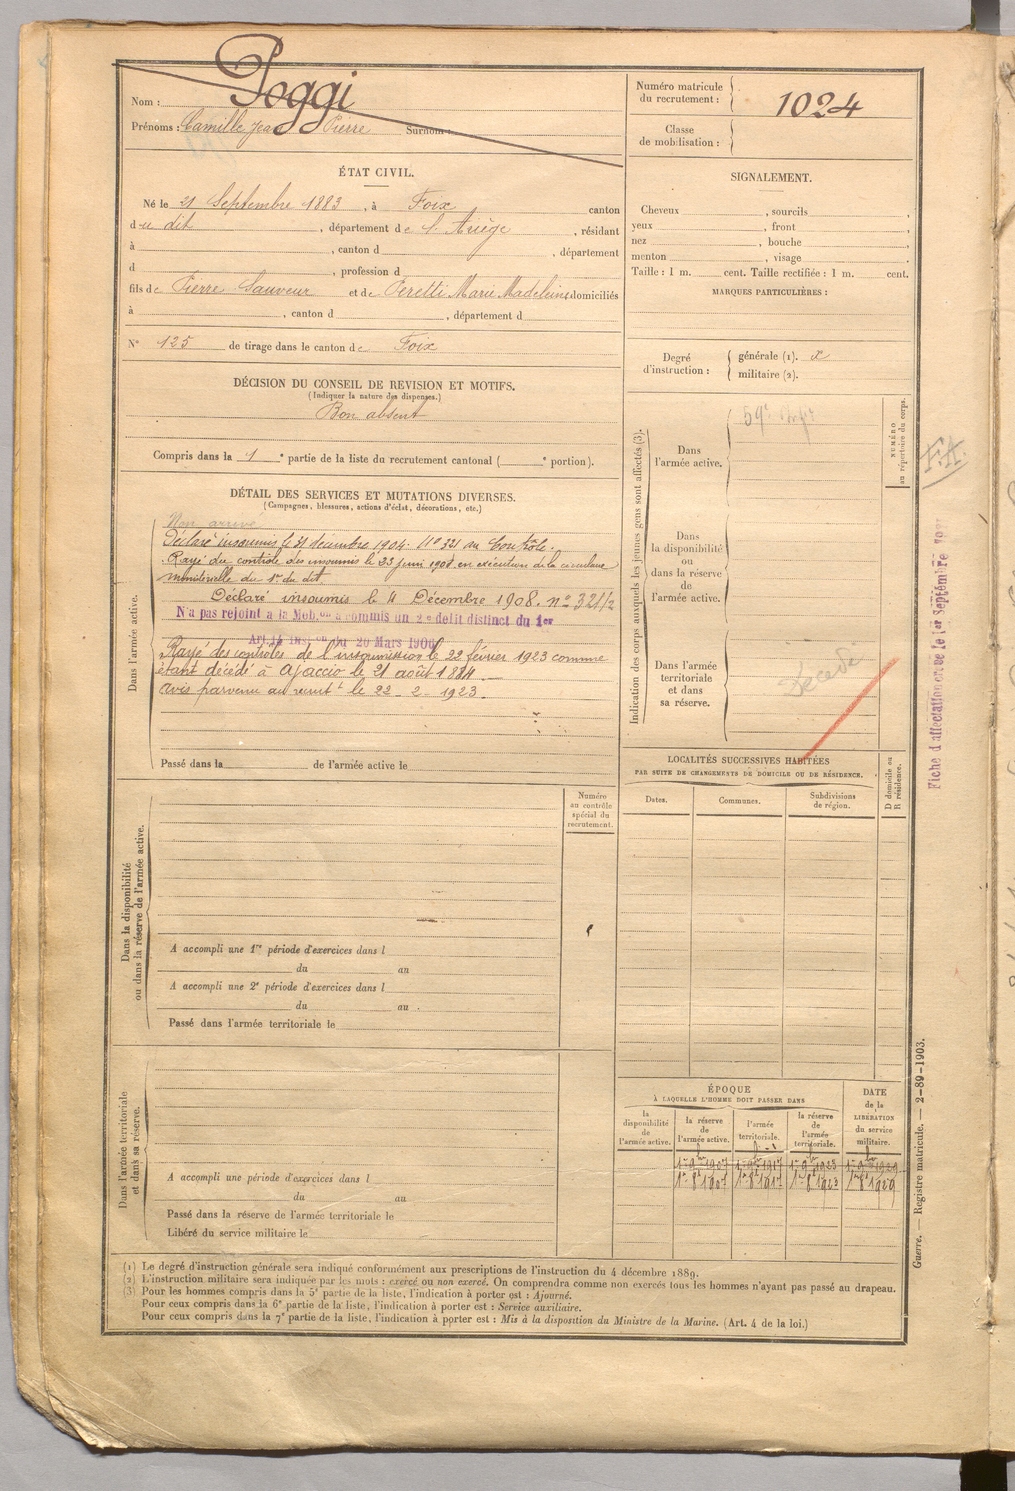 Nom : Poggi
Prénoms : Camille Jean Pierre Surnom :
Numéro matricule
du recrutement : 1024
Classe
de mobilisation :
ÉTAT CIVIL.
Né le 21 Septembre 1883, à Foix canton
du dit, département de l'Ariège, résidant
à , canton d , département
d , profession d
fils de Pierre Sauveur et de Peretti Marie Madeleine domiciliés
à , canton d , département d
N° 125 de tirage dans le canton de Foix
DÉCISION DU CONSEIL DE REVISION ET MOTIFS.
(Indiquer la nature des dispenses.)
Bon absent
Compris dans la 1e partie de la liste du recrutement cantonal ( e portion).
SIGNALEMENT.
Cheveux , sourcils ,
yeux , front ,
nez , bouche ,
menton , visage ,
Taille : 1 m. cent. Taille rectifiée : 1 m. cent.
MARQUES PARTICULIÈRES :
Degré
d'instruction :
générale (1). x
militaire (2).
DÉTAIL DES SERVICES ET MUTATIONS DIVERSES.
(Campagnes, blessures, actions d'éclat, décorations, etc.)
Dans l'armée active.
Non arrivé
Déclaré insoumis le 31 décembre 1904. N° 321 au Contrôle.
Rayé du contrôle des insoumis le 23 juin 1908 en exécution de la circulaire
ministérielle du 1er du dit.
Déclaré insoumis le 4 Décembre 1908. n° 321/2
N'a pas rejoint à la Mob.on a commis un 2e délit distinct du 1er
Art. 14 Inst.on du 20 Mars 1906
Rayé des contrôles de l'insoumission le 22 février 1923 comme
étant décédé à Ajaccio le 21 août 1884.
avis parvenu au recrut t le 22 - 2 - 1923.
Passé dans la de l'armée active le
Indication des corps auxquels les jeunes gens sont affectés (3).
Dans
l'armée active.
59e
NUMÉRO
au répertoire du corps.
Dans
la disponibilité
ou
dans la réserve
de
l'armée active.
Dans l'armée
territoriale
et dans
sa réserve.
Décédé
F.A.
Fiche d'affectation créée le 1er Septembre
LOCALITÉS SUCCESSIVES HABITÉES
PAR SUITE DE CHANGEMENTS DE DOMICILE OU DE RÉSIDENCE.
Dates. Communes. Subdivisions
de région.
D domicile ou
R résidence.
Numéro
au contrôle
spécial du
recrutement.
Dans la disponibilité
ou dans la réserve de l'armée active.
A accompli une 1re période d'exercices dans l
du au
A accompli une 2e période d'exercices dans l
du au
Passé dans l'armée territoriale le
Dans l'armée territoriale
et dans sa réserve.
A accompli une période d'exercices dans l
du au
Passé dans la réserve de l'armée territoriale le
Libéré du service militaire le
ÉPOQUE
À LAQUELLE L'HOMME DOIT PASSER DANS
la
disponibilité
de
l'armée active.
la réserve
de
l'armée active.
l'armée
territoriale.
la réserve
de
l'armée
territoriale.
DATE
de la
LIBÉRATION
du service
militaire.
1er 9bre 1907 1er 9bre 1917 1er 9bre 1923 1er 9bre 1929
1er 8bre 1907 1er 8bre 1917 1er 8bre 1923 1er 8bre 1929
Guerre. — Registre matricule. — 2-89-1903.
(1) Le degré d'instruction générale sera indiqué conformément aux prescriptions de l'instruction du 4 décembre 1889.
(2) L'instruction militaire sera indiquée par les mots : exercé ou non exercé. On comprendra comme non exercés tous les hommes n'ayant pas passé au drapeau.
(3) Pour les hommes compris dans la 5e partie de la liste, l'indication à porter est : Ajourné.
Pour ceux compris dans la 6e partie de la liste, l'indication à porter est : Service auxiliaire.
Pour ceux compris dans la 7e partie de la liste, l'indication à porter est : Mis à la disposition du Ministre de la Marine. (Art. 4 de la loi.)